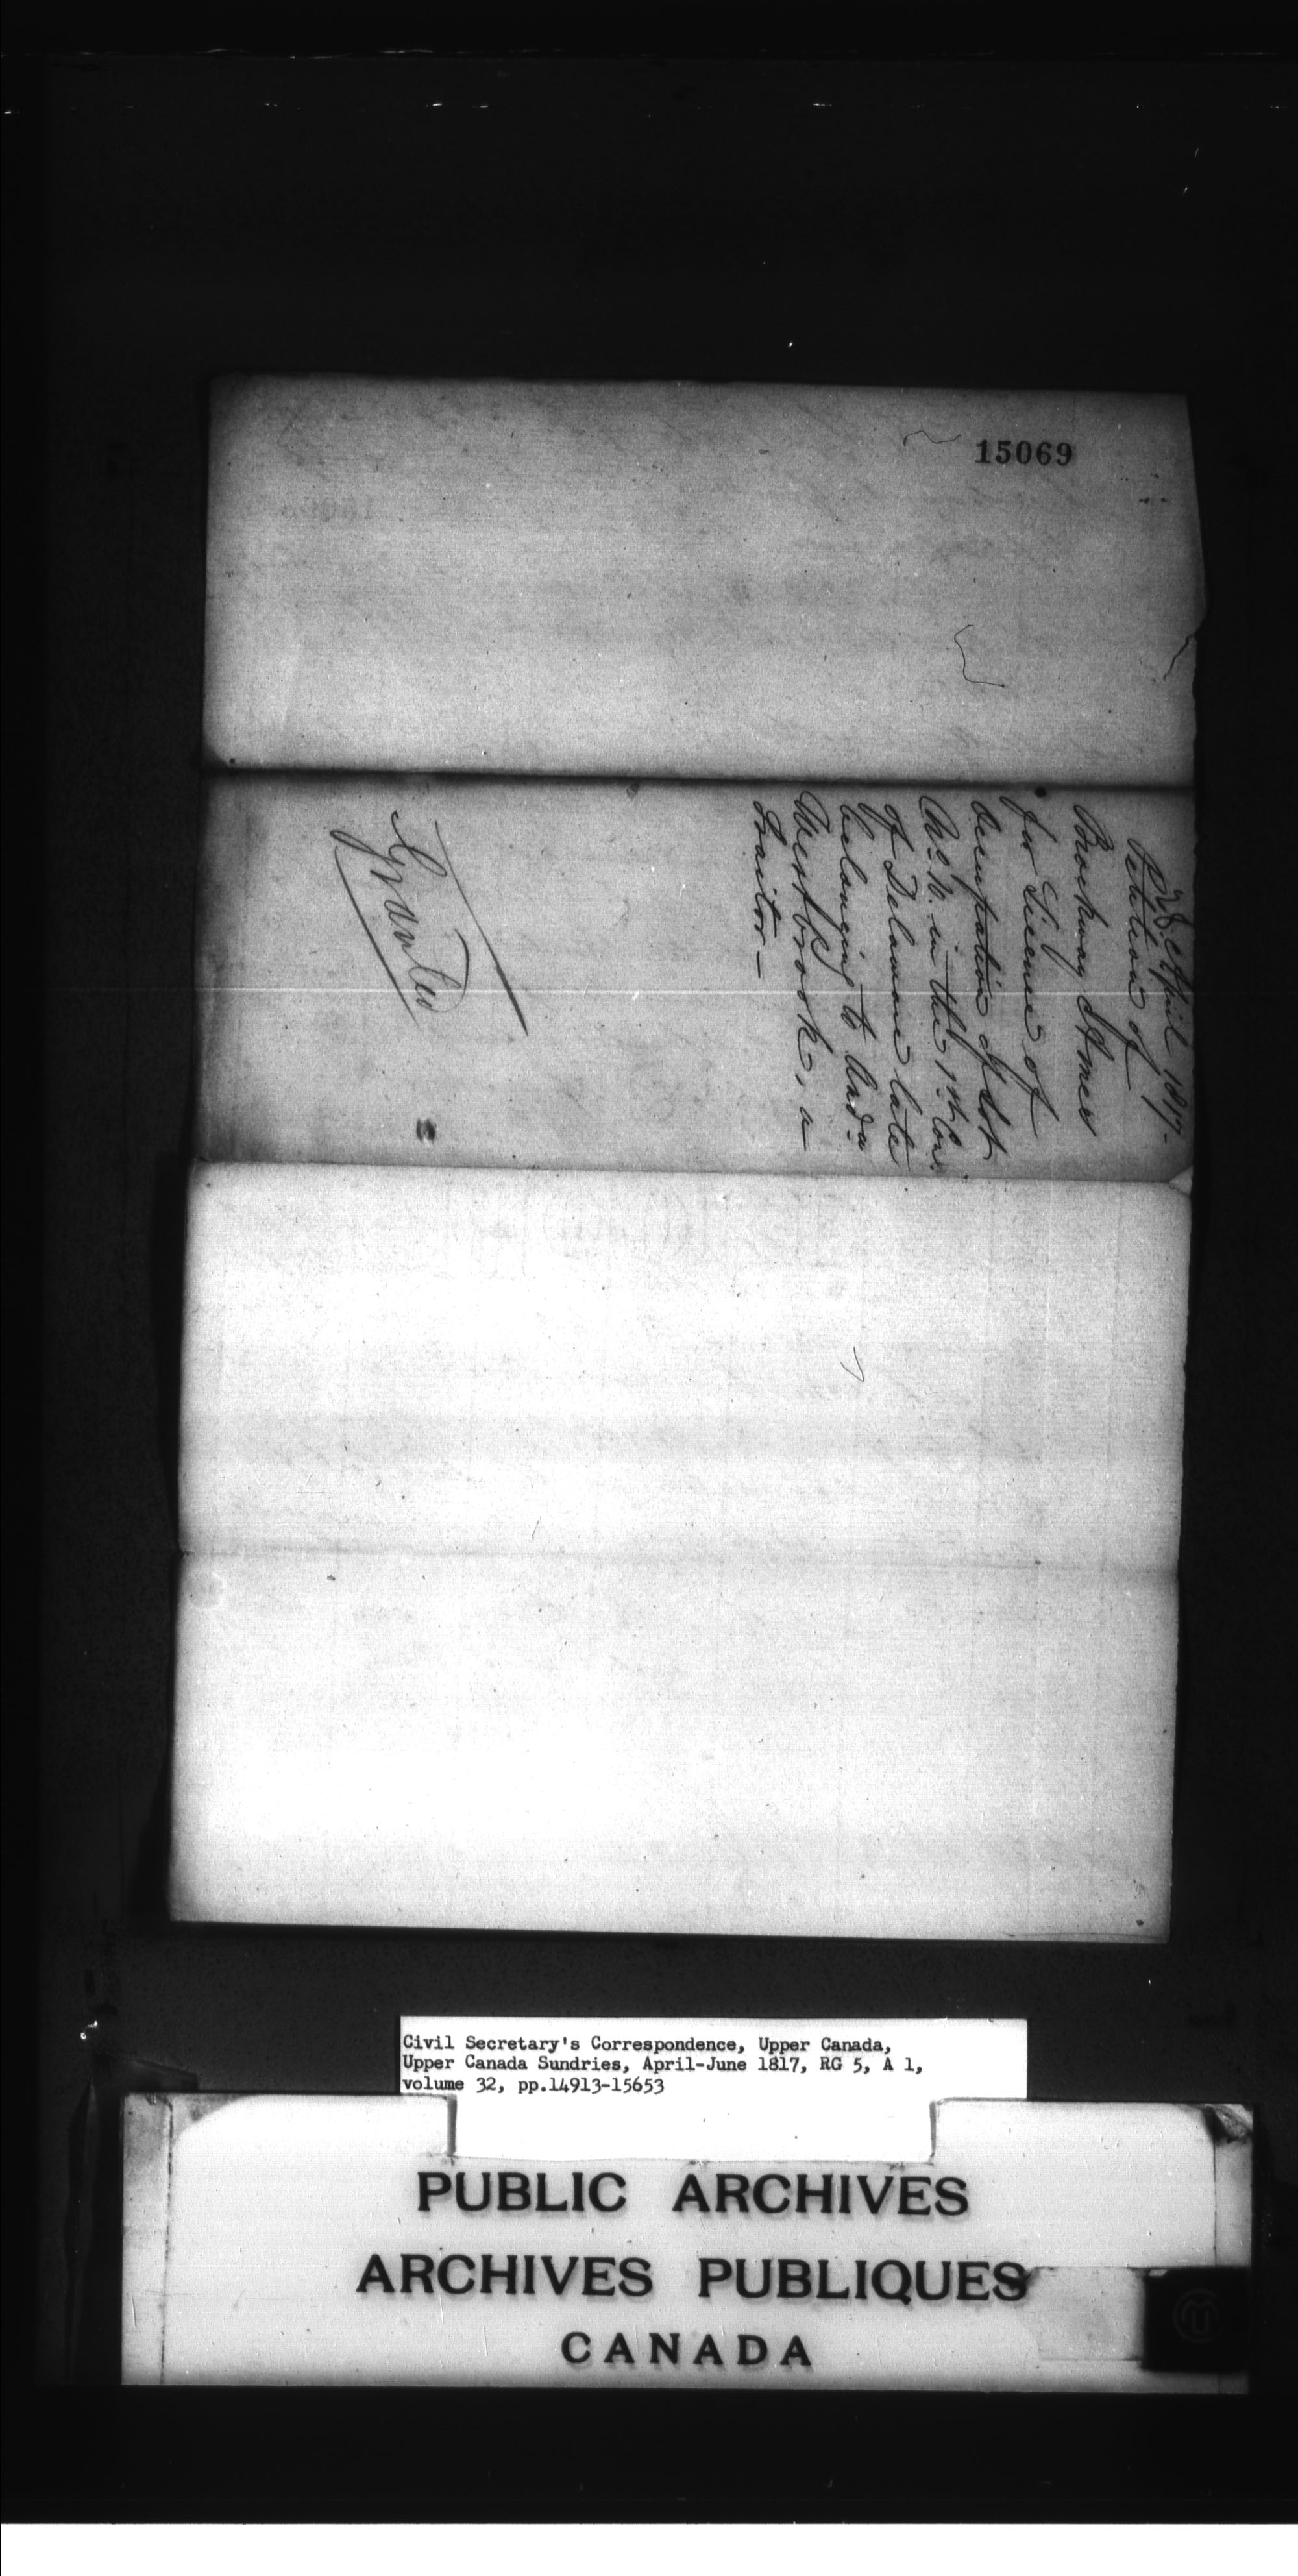 15069
28 April 1817-
Petition of
Brockway
for License of
Occupation of Lot
No. in the 1st Con.
of Delaware late
belonging to And^w
Westbrook, a
Traitor-
Granted
Civil Secretary's Correspondence, Upper Canada,
Upper Canada Sundries, April-June 1817, RG 5, A 1,
volume 32, pp.14913-15653
PUBLIC ARCHIVES
ARCHIVES PUBLIQUES
CANADA